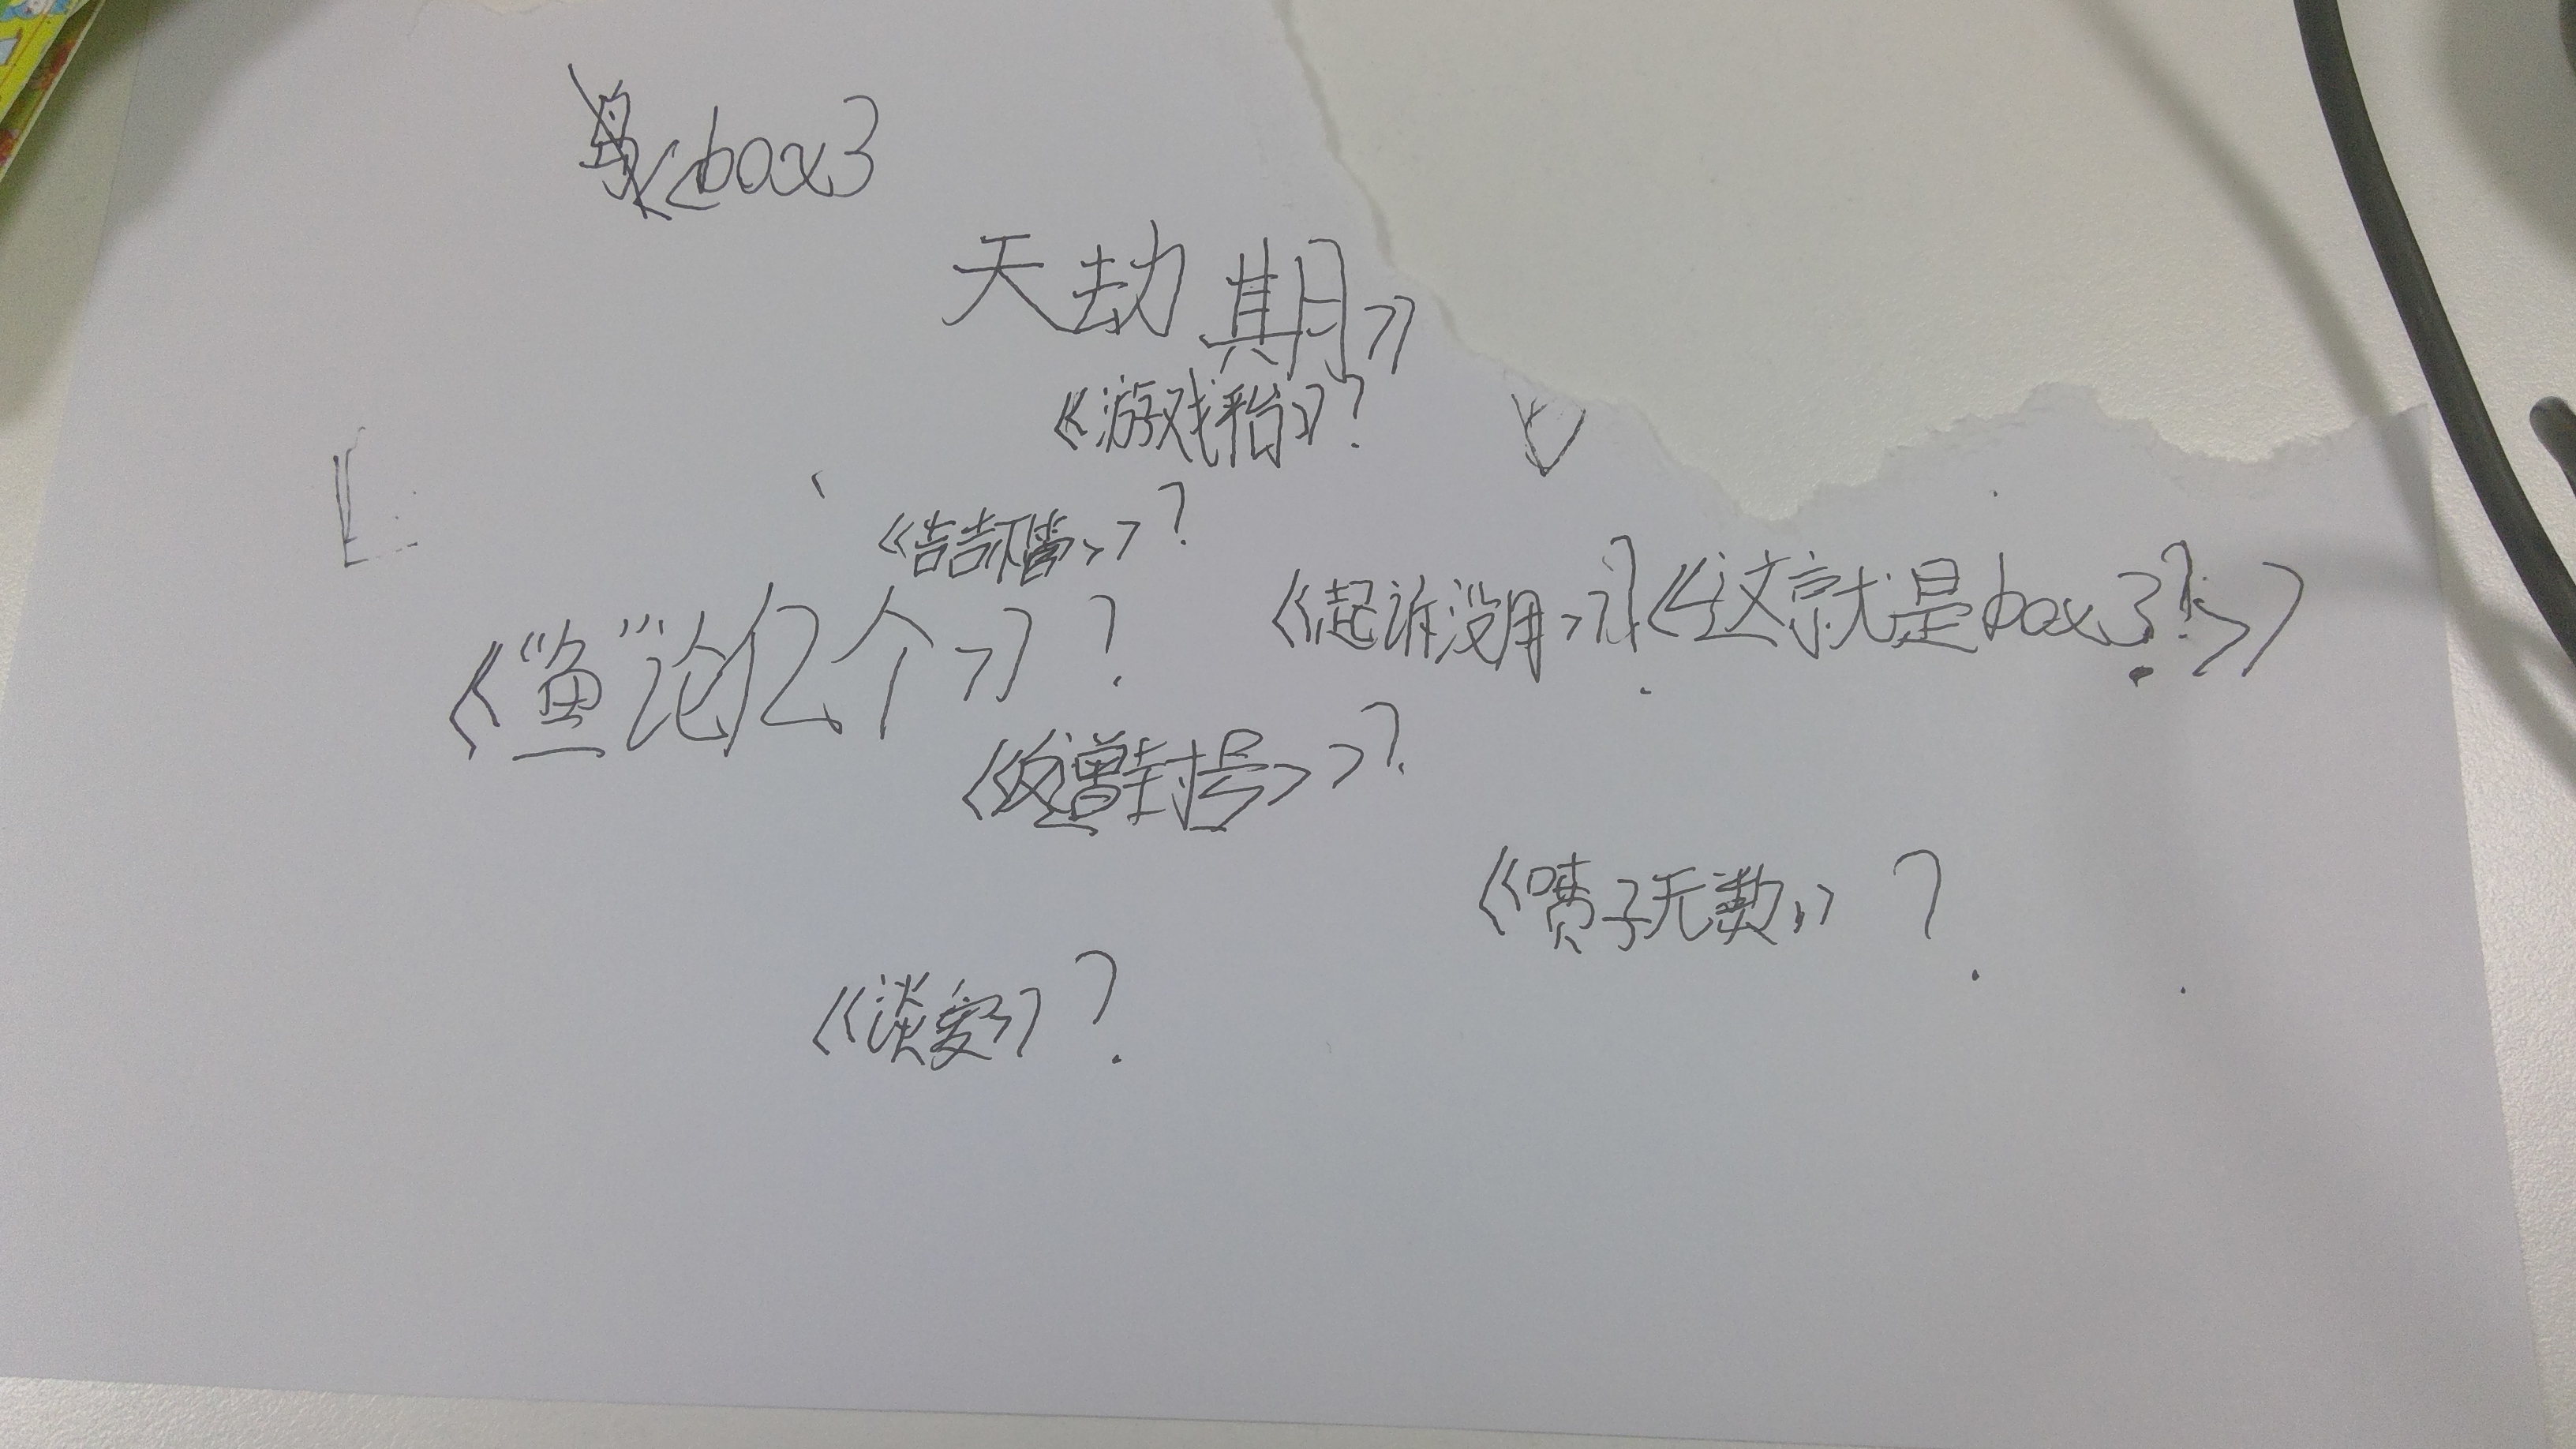 《box3
天劫期》
《游戏台》?
《告告不错》?
《起诉没用》? 《这就是box3?》
《“鱼”论亿个》?
《封号》?
《喷子无数》?
《谈爱》?